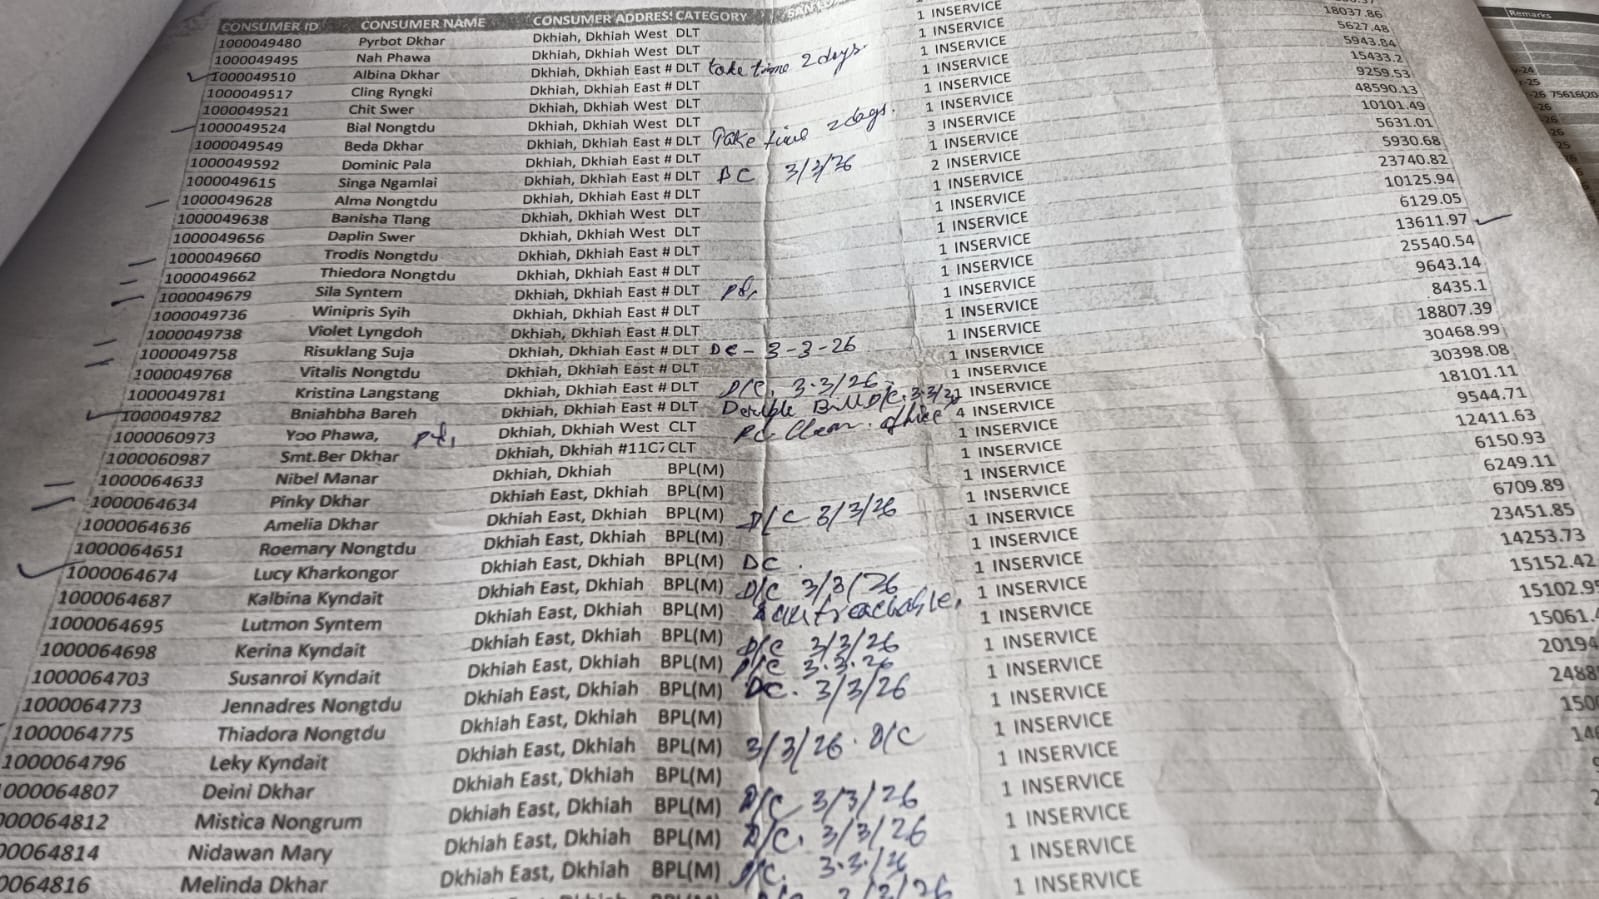 CONSUMER ID CONSUMER NAME CONSUMER ADDRES! CATEGORY
1000049480 Pyrbot Dkhar Dkhiah, Dkhiah West DLT
1000049495 Nah Phawa Dkhiah, Dkhiah East # DLT take time 2 days.
1000049510 Albina Dkhar Dkhiah, Dkhiah East # DLT
1000049517 Cling Ryngki Dkhiah, Dkhiah West DLT
1000049521 Chit Swer Dkhiah, Dkhiah West DLT
1000049524 Bial Nongtdu Dkhiah, Dkhiah East # DLT Take time 2 days.
1000049549 Beda Dkhar Dkhiah, Dkhiah East # DLT
1000049592 Dominic Pala Dkhiah, Dkhiah East # DLT DC 3/3/26
1000049615 Singa Ngamlai Dkhiah, Dkhiah East # DLT
1000049628 Alma Nongtdu Dkhiah, Dkhiah West DLT
1000049638 Banisha Tlang Dkhiah, Dkhiah West DLT
1000049656 Daplin Swer Dkhiah, Dkhiah East # DLT
1000049660 Trodis Nongtdu Dkhiah, Dkhiah East # DLT
1000049662 Thiedora Nongtdu Dkhiah, Dkhiah East # DLT
1000049679 Sila Syntem Dkhiah, Dkhiah East # DLT
1000049736 Winipris Syih Dkhiah, Dkhiah East # DLT
1000049738 Violet Lyngdoh Dkhiah, Dkhiah East # DLT DC - 3-3-26
1000049758 Risuklang Suja Dkhiah, Dkhiah East # DLT
1000049768 Vitalis Nongtdu Dkhiah, Dkhiah East # DLT D/C. 3.3/26
1000049781 Kristina Langstang Dkhiah, Dkhiah East # DLT
1000049782 Bniahbha Bareh Dkhiah, Dkhiah West CLT
1000060973 Yoo Phawa, Dkhiah, Dkhiah #11C7 CLT
1000060987 Smt.Ber Dkhar Dkhiah, Dkhiah BPL(M)
1000064633 Nibel Manar Dkhiah East, Dkhiah BPL(M)
1000064634 Pinky Dkhar Dkhiah East, Dkhiah BPL(M) D/C 3/3/26
1000064636 Amelia Dkhar Dkhiah East, Dkhiah BPL(M)
1000064651 Roemary Nongtdu Dkhiah East, Dkhiah BPL(M) DC.
1000064674 Lucy Kharkongor Dkhiah East, Dkhiah BPL(M) D/C 3/3/26
1000064687 Kalbina Kyndait Dkhiah East, Dkhiah BPL(M)
1000064695 Lutmon Syntem Dkhiah East, Dkhiah BPL(M) D/C 3/3/26
1000064698 Kerina Kyndait Dkhiah East, Dkhiah BPL(M) D/C 3.3.26
1000064703 Susanroi Kyndait Dkhiah East, Dkhiah BPL(M) DC. 3/3/26
1000064773 Jennadres Nongtdu Dkhiah East, Dkhiah BPL(M)
1000064775 Thiadora Nongtdu Dkhiah East, Dkhiah BPL(M) 3/3/26. D/C
1000064796 Leky Kyndait Dkhiah East, Dkhiah BPL(M)
000064807 Deini Dkhar Dkhiah East, Dkhiah BPL(M) D/C 3/3/26
00064812 Mistica Nongrum Dkhiah East, Dkhiah BPL(M) D/C. 3/3/26
0064814 Nidawan Mary Dkhiah East, Dkhiah BPL(M)
0064816 Melinda Dkhar
1 INSERVICE 18037.86
1 INSERVICE 5627.48
1 INSERVICE 5943.84
1 INSERVICE 15433.2
1 INSERVICE 9259.53
1 INSERVICE 48590.13
3 INSERVICE 10101.49
1 INSERVICE 5631.01
2 INSERVICE 5930.68
1 INSERVICE 23740.82
1 INSERVICE 10125.94
1 INSERVICE 6129.05
1 INSERVICE 13611.97
1 INSERVICE 25540.54
1 INSERVICE 9643.14
1 INSERVICE 8435.1
1 INSERVICE 18807.39
1 INSERVICE 30468.99
1 INSERVICE 30398.08
1 INSERVICE 18101.11
4 INSERVICE 9544.71
1 INSERVICE 12411.63
1 INSERVICE 6150.93
1 INSERVICE 6249.11
1 INSERVICE 6709.89
1 INSERVICE 23451.85
1 INSERVICE 14253.73
1 INSERVICE 15152.42
1 INSERVICE
1 INSERVICE
1 INSERVICE
1 INSERVICE
1 INSERVICE
1 INSERVICE
1 INSERVICE
1 INSERVICE
1 INSERVICE
Remarks